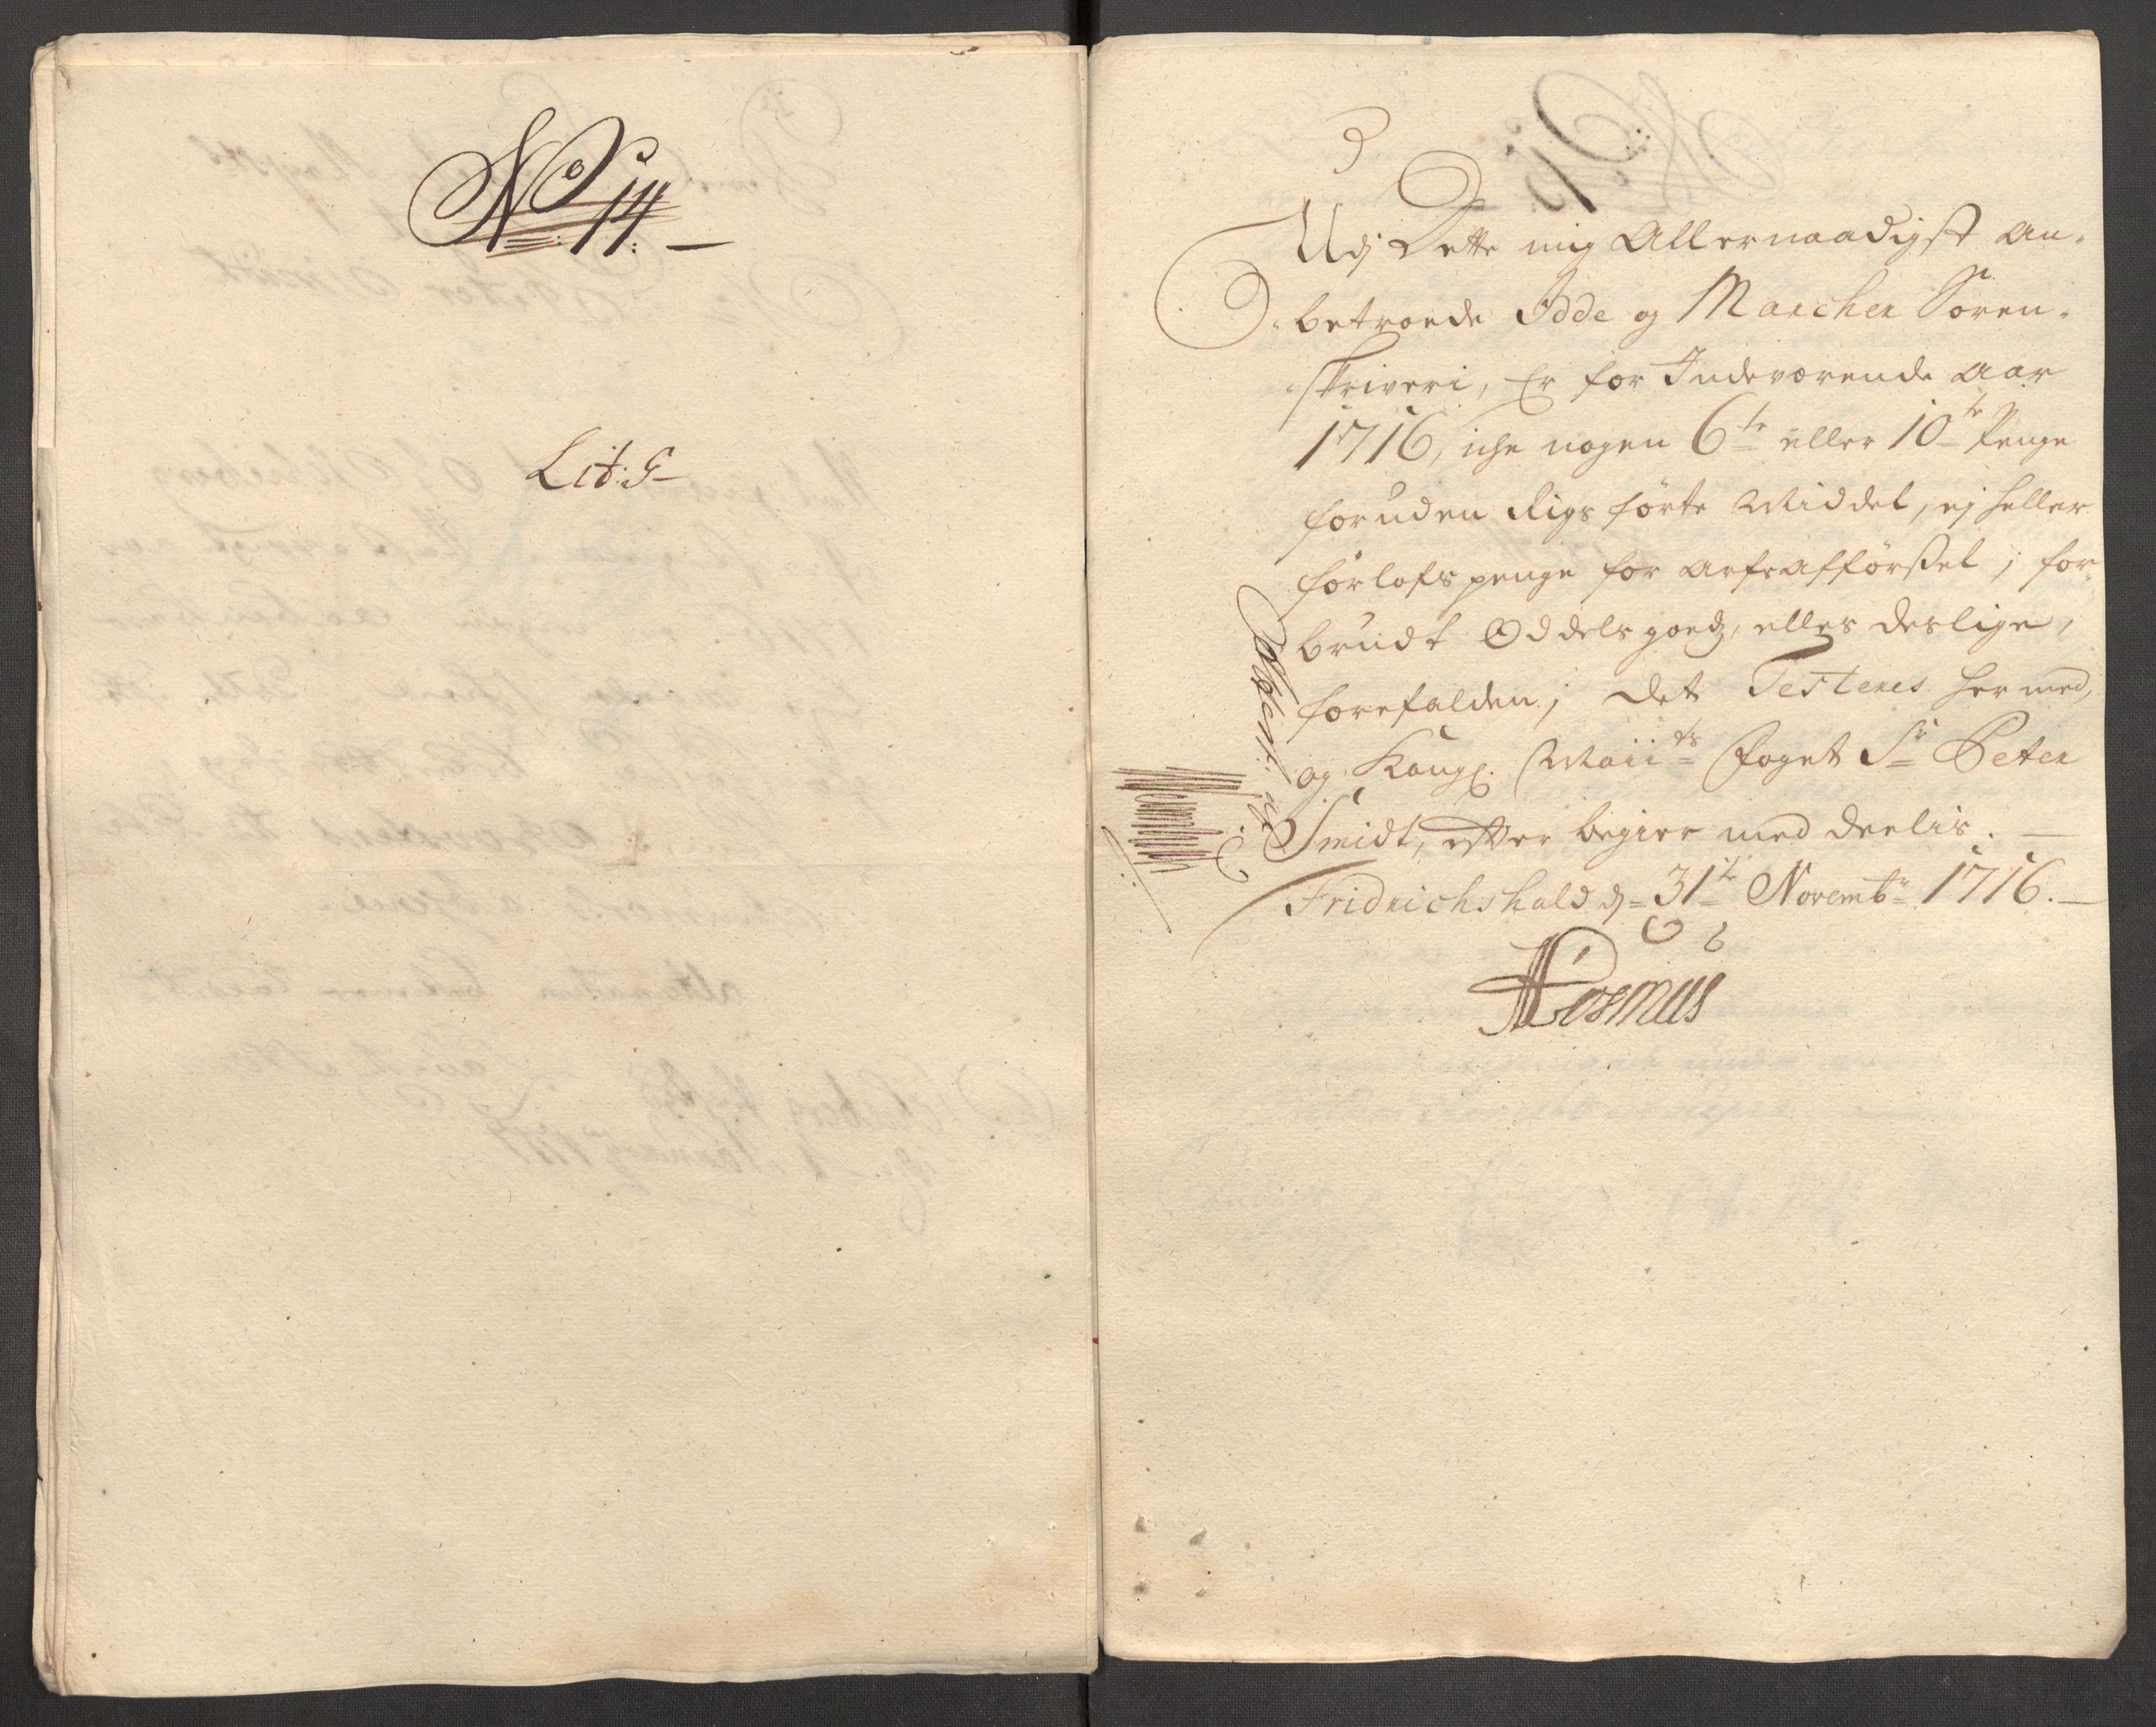 No 14.
Lit: G
Udj Dette mig Allernaadigst an-
betroede Idde og Marcher Soren-
skriveri, Er for Indeværende Aar
1716, iche nogen 6te eller 10te Penge
foruden Rigs førte Middel, ej heller
førlofs penge for arfs afførssel, for
brudt Oddels goedz, eller deslige,
forefalden; Det Testeres her med,
og Kongl. Maiits Foget Sr Peter
Smidt, efter begier med deelis.
Fridrichshald d= 31te Novembr 1716.